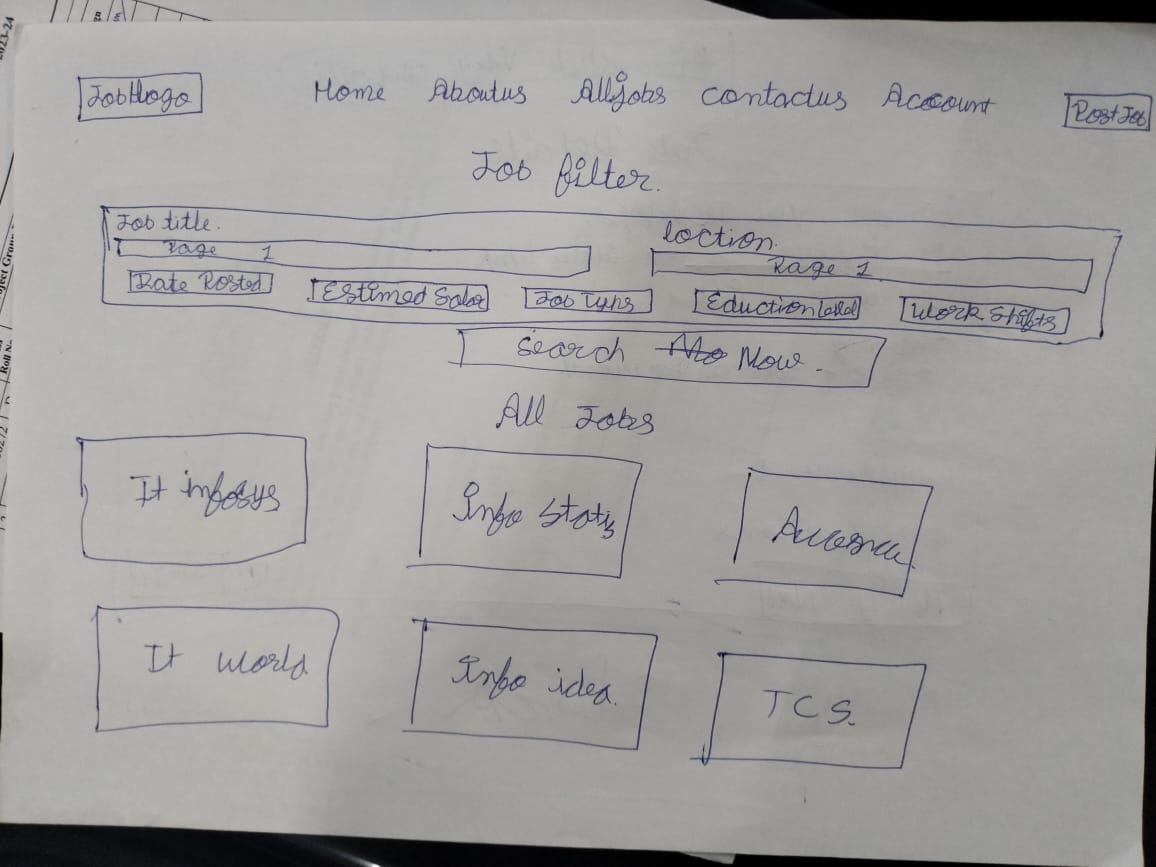 Job Logo Home Aboutus Alljobs contactus Account Post Job
Job filter.
Job title. loction.
Page 1 Page 1
Date Posted Estimed Salar Job Typs Eduction level Work Shifts
Search Now.
All Jobs
It infosys Info Statis
It world Info idea. TCS.
2023-24
Roll No